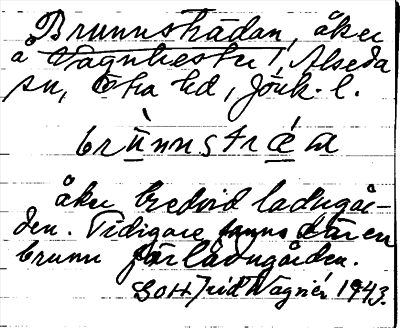 Brunnsträdan, åker
å Vagnhester 1, Alseda
sn, Östra hd, Jönk. l.
brùnnstræ´a
åker bredvid ladugår-
den. Tidigare fanns där en
brunn för ladugården.
Gottfrid Wagnér 1943.